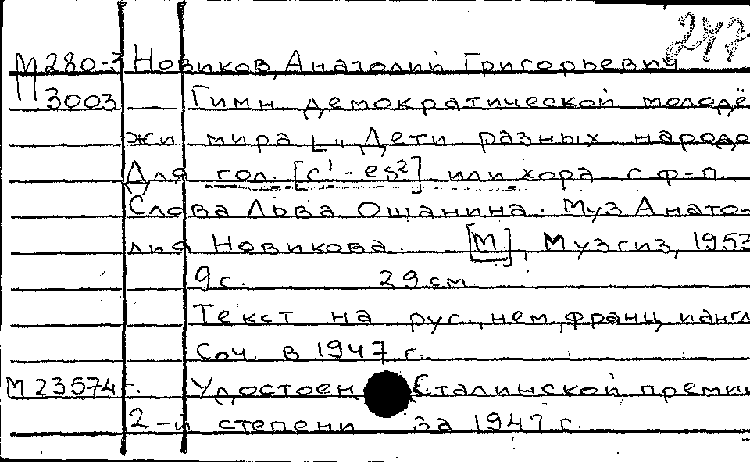 247
М280-3 Новиков, Анатолий Григорьевич
3003 — Гимн демократической молодё
жи мира [„Дети разных народо
Для гол. [c¹-es²] или хора с ф-п.
Слова Льва Ошанина. Муз Анато-
лия Новикова. [М], Музгиз, 1953
9 с. 29 см
Текст на рус., нем, франц и англ
Соч. в 1947 г.
М 23574 г. Удостоен Сталинской преми
2-й степени за 1947 г.